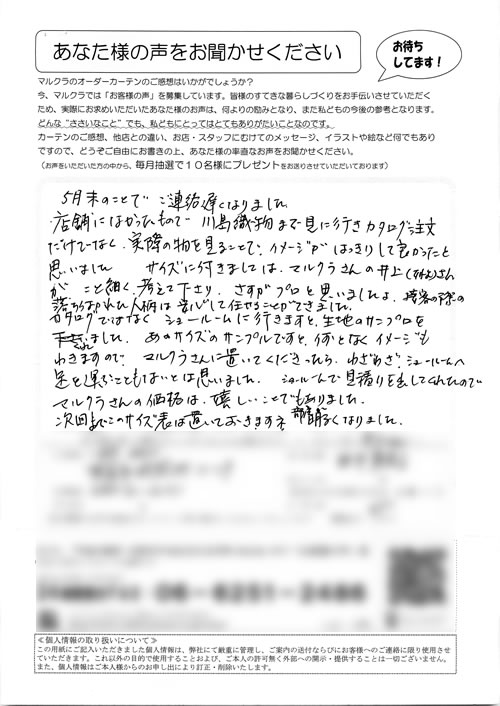 あなた様の声をお聞かせください
お待ち
してます！
マルクラのオーダーカーテンのご感想はいかがでしょうか？
今、マルクラでは「お客様の声」を募集しています。皆様のすてきな暮らしづくりをお手伝いさせていただく
ため、実際にお求めいただいたあなた様のお声は、何よりの励みとなり、また私どもの今後の参考となります。
どんな“ささいなこと”でも、私どもにとってはとてもありがたいことなのです。
カーテンのご感想、他店との違い、お店・スタッフにむけてのメッセージ、イラストや絵など何でもあり
ですので、どうぞご自由にお書きの上、あなた様の率直なお声をお聞かせください。
（お声をいただいた方の中から、毎月抽選で１０名様にプレゼントをお送りさせていただいております）
5月末のことで ご連絡遅くなりました
店舗にはなかったもので 川島織物まで見に行きカタログ注文
だけではなく、実際の物を見ることで、イメージが はっきりして良かったと
思いました サイズに付きましては、マルクラさんの井上さん
が こと細く、考えて下さり、さすがプロと思いましたよ、接客の際の
落ちつかれた人柄は安心して任せることができました。
カタログではなく ショールームに行きますと、生地のサンプルを
ました。 あのサイズのサンプルですと、何となくイメージも
わきますので、マルクラさんに置いてくださったら、わざわざ、ショールームへ
足を運ぶこともないとは思いました。 ショールームで見積りを出してくれたので
マルクラさんの価格は、嬉しいことでもありました。
次回までこのサイズ表は置いておきますネ 部屋が明るくなりました。
06-6251-2486
≪個人情報の取り扱いについて≫
この用紙にご記入いただきました個人情報は、弊社にて厳重に管理し、ご案内の送付ならびにお客様へのご連絡に限り使用させ
ていただきます。これ以外の目的で使用することおよび、ご本人の許可無く外部への開示・提供することは一切ございません。
また、個人情報はご本人様からのお申し出により訂正・削除いたします。